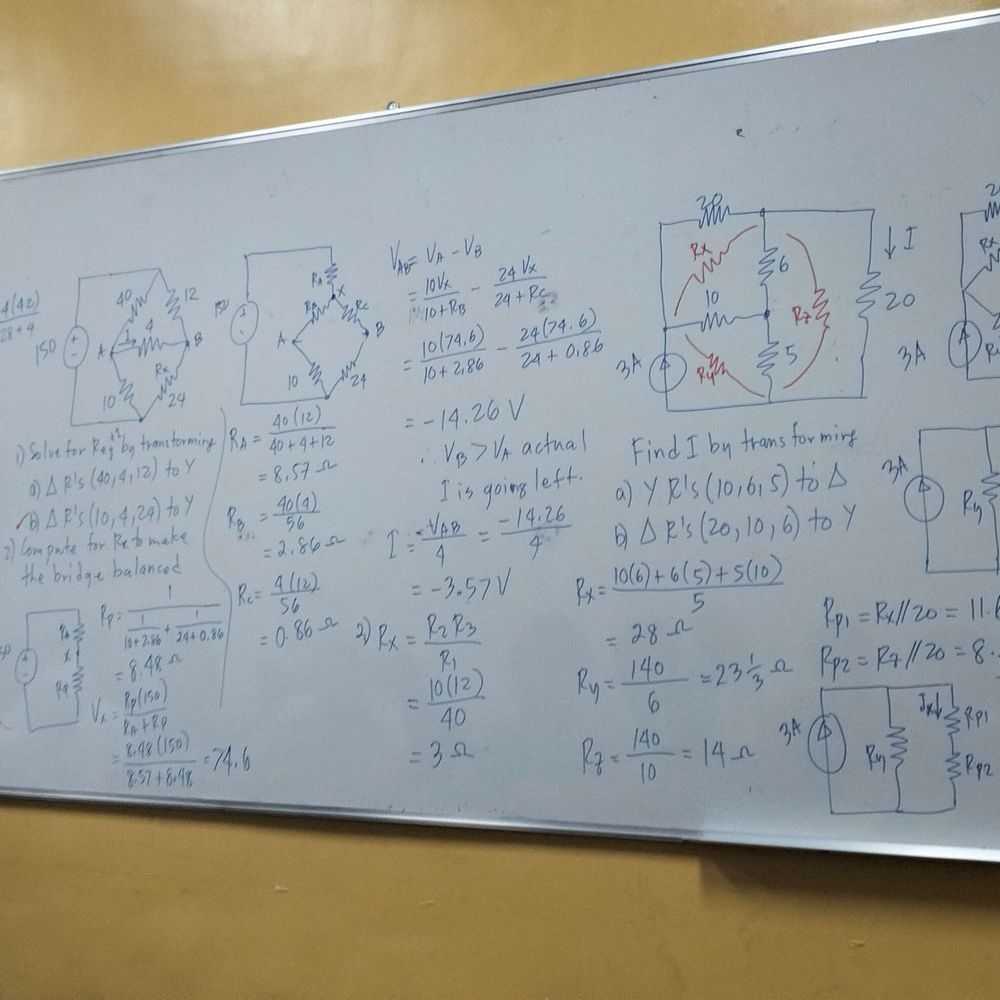 4(42)
28+4
150
40
12
4
A
B
10
Rx
24
1) Solve for Req by transforming
a) Δ R's (40, 4, 12) to Y
b) Δ R's (10, 4, 24) to Y
2) Compute for Rx to make
the bridge balanced
RA
X
RB
RC
A
B
10
24
RA = 40(12)
40+4+12
= 8.57 Ω
RB = 40(4)
56
= 2.86 Ω
Rc = 4(12)
56
= 0.86 Ω
Rp = 1
1/(10+2.86) + 1/(24+0.86)
= 8.48 Ω
Vx = Rp(150)
RA+Rp
= 8.48(150)
8.57+8.48
= 74.6
VAB = VA - VB
= 10Vx/(10+RB) - 24Vx/(24+Rc)
= 10(74.6)/(10+2.86) - 24(74.6)/(24+0.86)
= -14.26 V
∴ VB > VA actual
I is going left.
I = VAB/4 = -14.26/4
= -3.57 V
2) Rx = R2R3
R1
= 10(12)
40
= 3 Ω
Rx
6
↓ I
10
Rz
20
3A
Ry
5
Find I by transforming
a) Y R's (10, 6, 5) to Δ
b) Δ R's (20, 10, 6) to Y
Rx = 10(6)+6(5)+5(10)
5
= 28 Ω
Ry = 140/6 = 23 1/3 Ω
Rz = 140/10 = 14 Ω
Rx
3A
3A
Ry
Rp1 = Rx//20 = 11.6
Rp2 = Rz//20 = 8.
3A
Ry
Ix↓
Rp1
Rp2